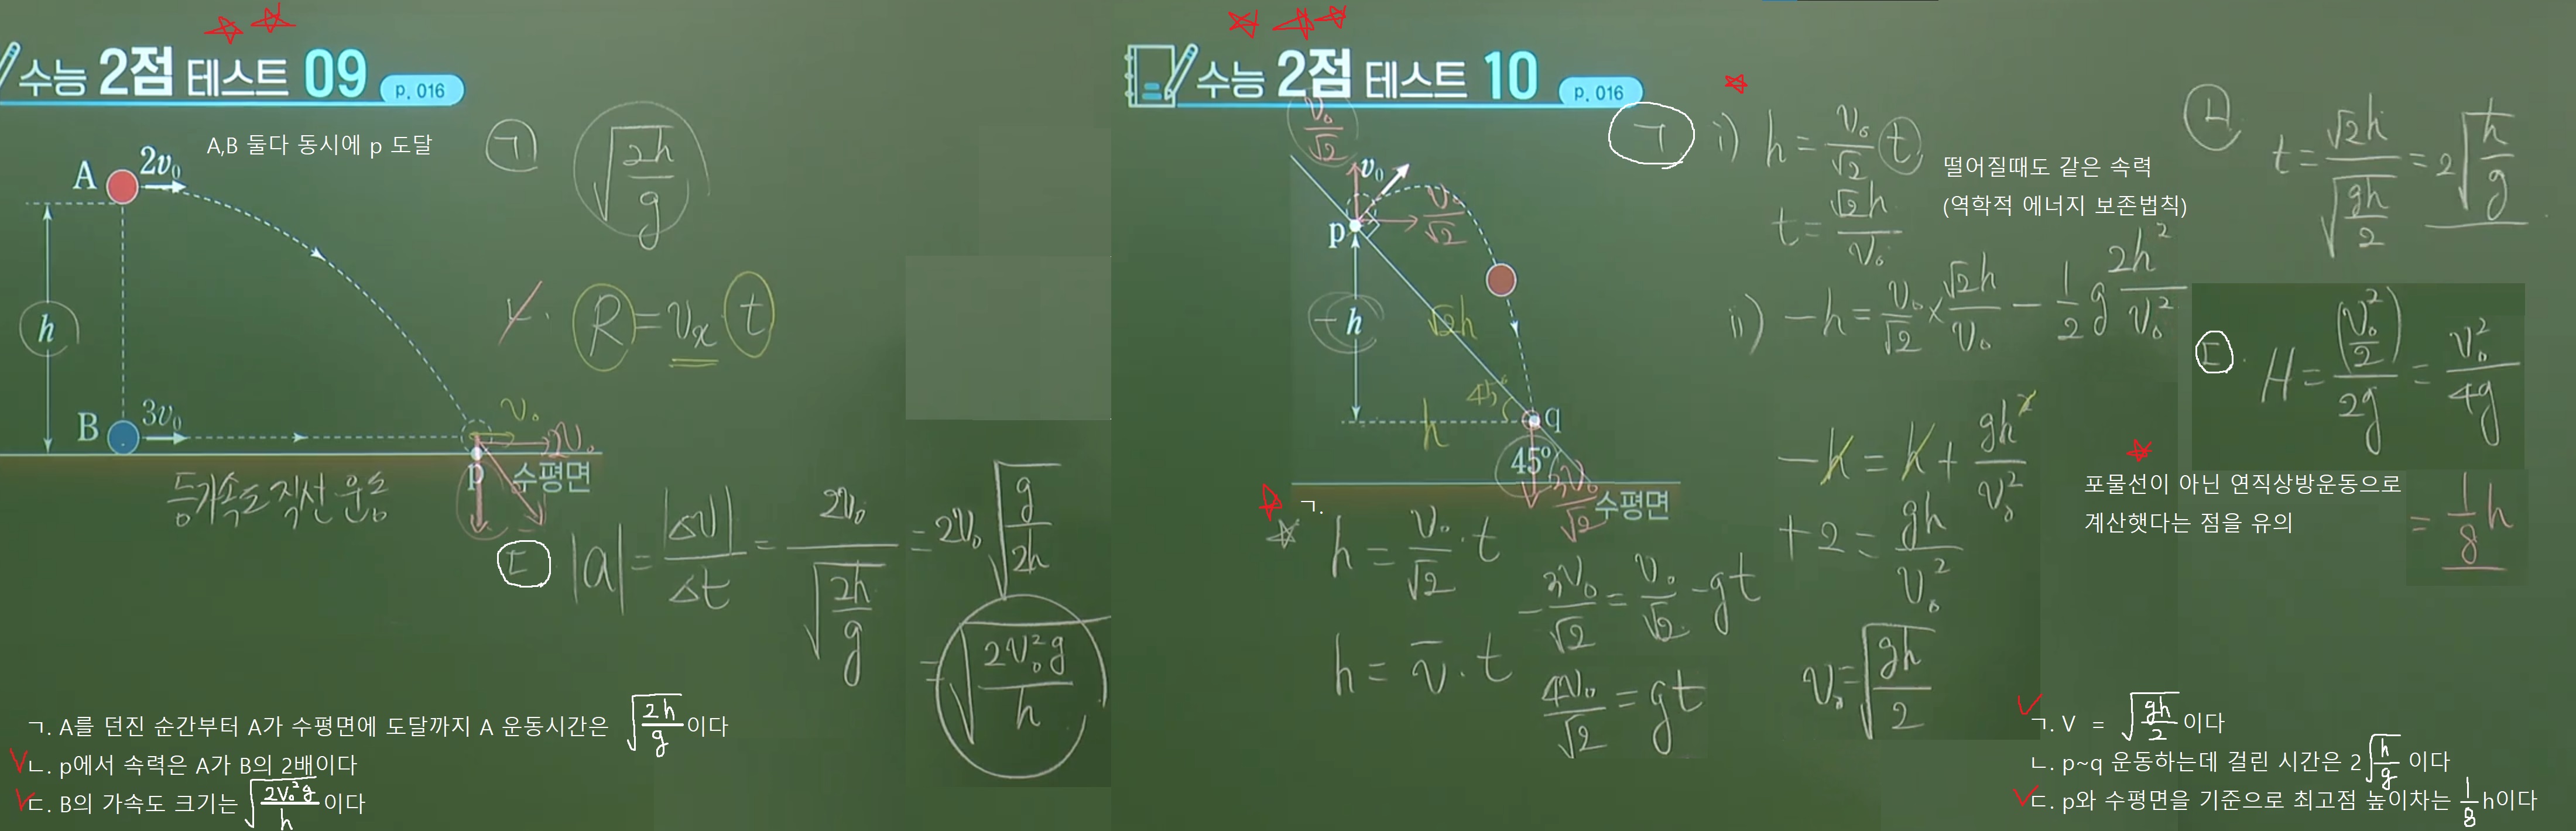 수능 2점 테스트 09 p. 016
A,B 둘다 동시에 p 도달
ㄱ √(2h/g)
A 2v₀
h
B 3v₀
v₀
2v₀
p 수평면
등가속도 직선 운동
ㄴ. R = vₓ · t
ㄷ |a| = |Δv|/Δt = 2v₀/√(2h/g) = 2v₀ √(g/2h)
= √(2v₀²g/h)
ㄱ. A를 던진 순간부터 A가 수평면에 도달까지 A 운동시간은 √(2h/g) 이다
ㄴ. p에서 속력은 A가 B의 2배이다
ㄷ. B의 가속도 크기는 √(2v₀²g/h) 이다
수능 2점 테스트 10 p. 016
v₀/√2
v₀
v₀/√2
p
-h
√2h
45°
h
q
45°
3v₀/√2
수평면
ㄱ i) h = v₀/√2 t
t = √2h/v₀
떨어질때도 같은 속력
(역학적 에너지 보존법칙)
ii) -h = v₀/√2 × √2h/v₀ - 1/2 g 2h²/v₀²
-h = h + gh²/v₀²
+2 = gh/v₀²
v₀ = √(gh/2)
ㄱ.
h = v₀/√2 · t
h = v̄ · t
-3v₀/√2 = v₀/√2 - gt
4v₀/√2 = gt
ㄴ t = √2h/√(gh/2) = 2√(h/g)
ㄷ. H = (v₀²/2)/2g = v₀²/4g
= 1/8 h
포물선이 아닌 연직상방운동으로
계산햇다는 점을 유의
ㄱ. V = √(gh/2) 이다
ㄴ. p~q 운동하는데 걸린 시간은 2√(h/g) 이다
ㄷ. p와 수평면을 기준으로 최고점 높이차는 1/8 h이다